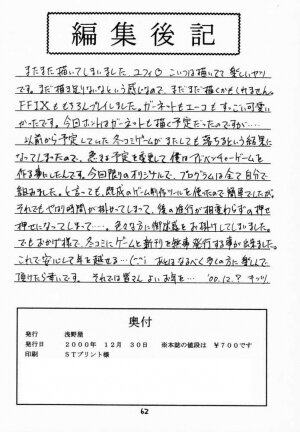 編集後記
またまた描いてしまいました、ユフィ♡ こいつは描いてて楽しいヤツ
です。まだ描き足りないなという感じなので、まだまだ描くかもしれません。
FFIXももちろんプレイしました。ガーネットもエーコも、すっごい可愛い
かったです。今回ホントはガーネットも描く予定だったのですが‥‥
以前から予定していた冬コミゲームがまたしても落ちるという結果に
なってしまったので、急きょ予定を変更して僕はアドベンチャーゲームを
作る事にしたんです。今回限りのオリジナルで、プログラムは全て自分で
組みました。と言っても、既成のゲーム制作ツールを使ったので簡単でしたが。
それでもやはり時間が掛かってしまって、後の進行が相変わらずの押せ
押せになってしまって‥‥。色々な方に御迷惑をお掛けしてしまいました。
でもおかげ様で、冬コミにゲームと新刊を無事発行する事が出来ました。
これで安心して年を越せる…(^^) あとはなるべく多くの方に楽しんで
頂けたら幸いです。それでは皆さんよいお年を… '00.12.?
奥付
発行 浅野屋
発行日 2000年 12月 30日 ※本誌の値段は ¥700です
印刷 STプリント様
62